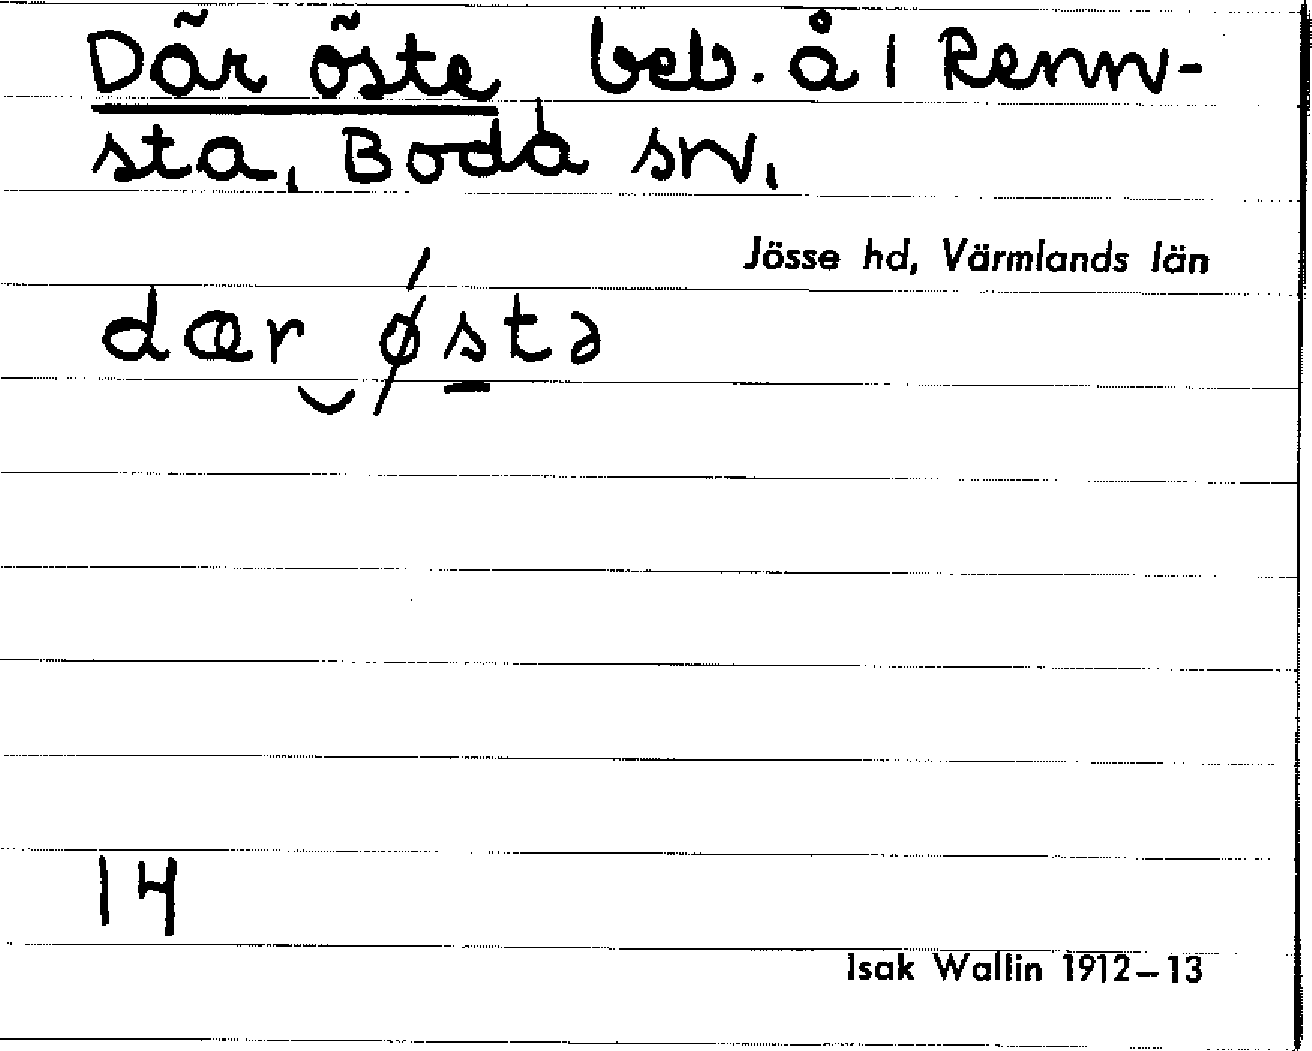 Där öste, beb. å 1 Renn-
sta, Boda sn,
Jösse hd, Värmlands län
dær ‿ østə
14
Isak Wallin 1912–13